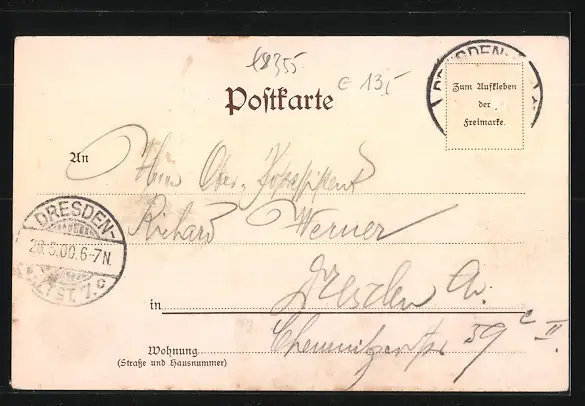 18355
E 13,-
Postkarte
DRESDEN-
Zum Aufkleben
der
Freimarke.
An
Herrn Ober-Postassistent
Richard Werner
DRESDEN-
.5.00.6-7N.
in Dresden A.
Wohnung Chemnitzerstr 59 c II.
(Straße und Hausnummer)